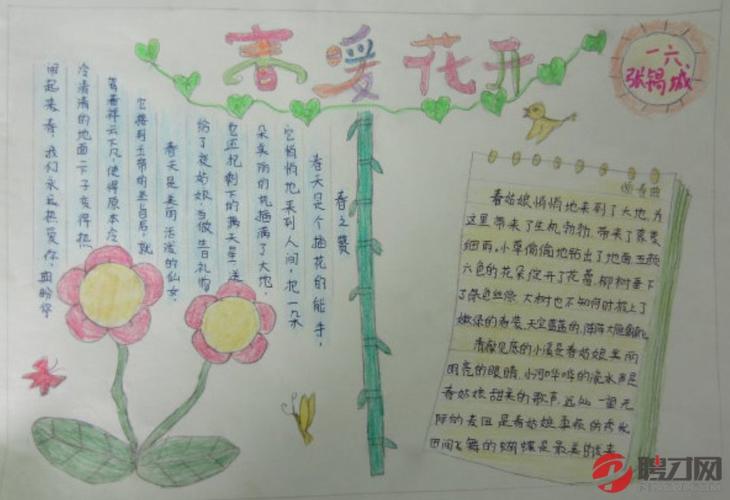 春暖花开
一六
张锡城
春之赞
春天是个插花的能手，
它悄悄地来到人间，把一朵
朵美丽的花插满了大地，
它还把剩下的满天星，送
给了夜姑娘，当做生日礼物
春天是美丽活泼的仙女，
它接到玉帝的圣旨后，就
驾着祥云下凡，使得原本冷
冷清清的地面一下子变得热
闹起来。春，我们永远热爱你，期盼你
春姑娘悄悄地来到了大地，为
这里带来了生机勃勃，带来了蒙蒙
细雨，小草偷偷地钻出了地面，五颜
六色的花朵绽开了花蕾，柳树垂下
了绿色丝绦，大树也不知何时披上了
嫩绿的春装，天空蓝蓝的，阵阵大雁
清澈见底的小溪是春姑娘美丽
明亮的眼睛，小河哗哗的流水声是
春姑娘甜美的歌声，远处一望无
际的麦田是春姑娘乘顺的秀发
田间飞舞的蝴蝶是最美的
聘才网